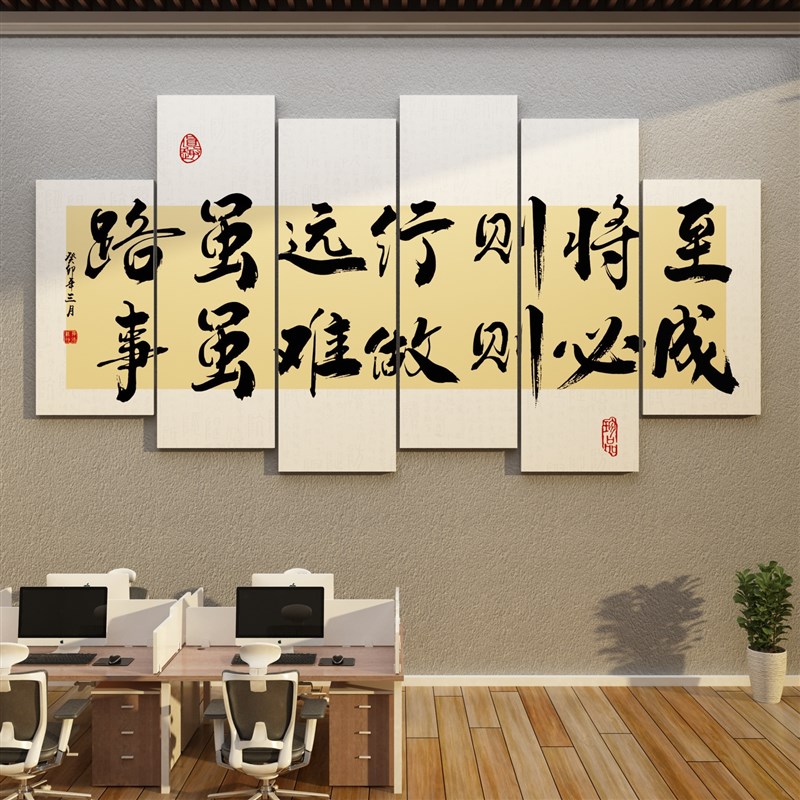 路虽远行则将至
事虽难做则必成
癸卯年三月
珍品